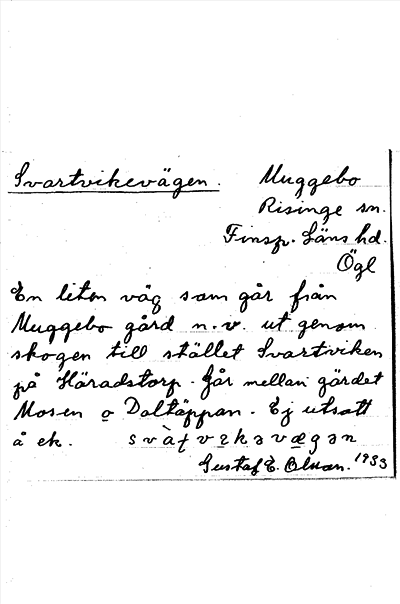 Svartvikevägen. Muggebo
Risinge sn.
Finsp. Läns hd.
Ögl
En liten väg som går från
Muggebo gård n.v. ut genom
skogen till stället Svartviken
på Häradstorp. Går mellan gärdet
Mosen o Daltäppan. Ej utsatt
å ek. svàƭvekəvægən
Gustaf E. Olsson. 1933